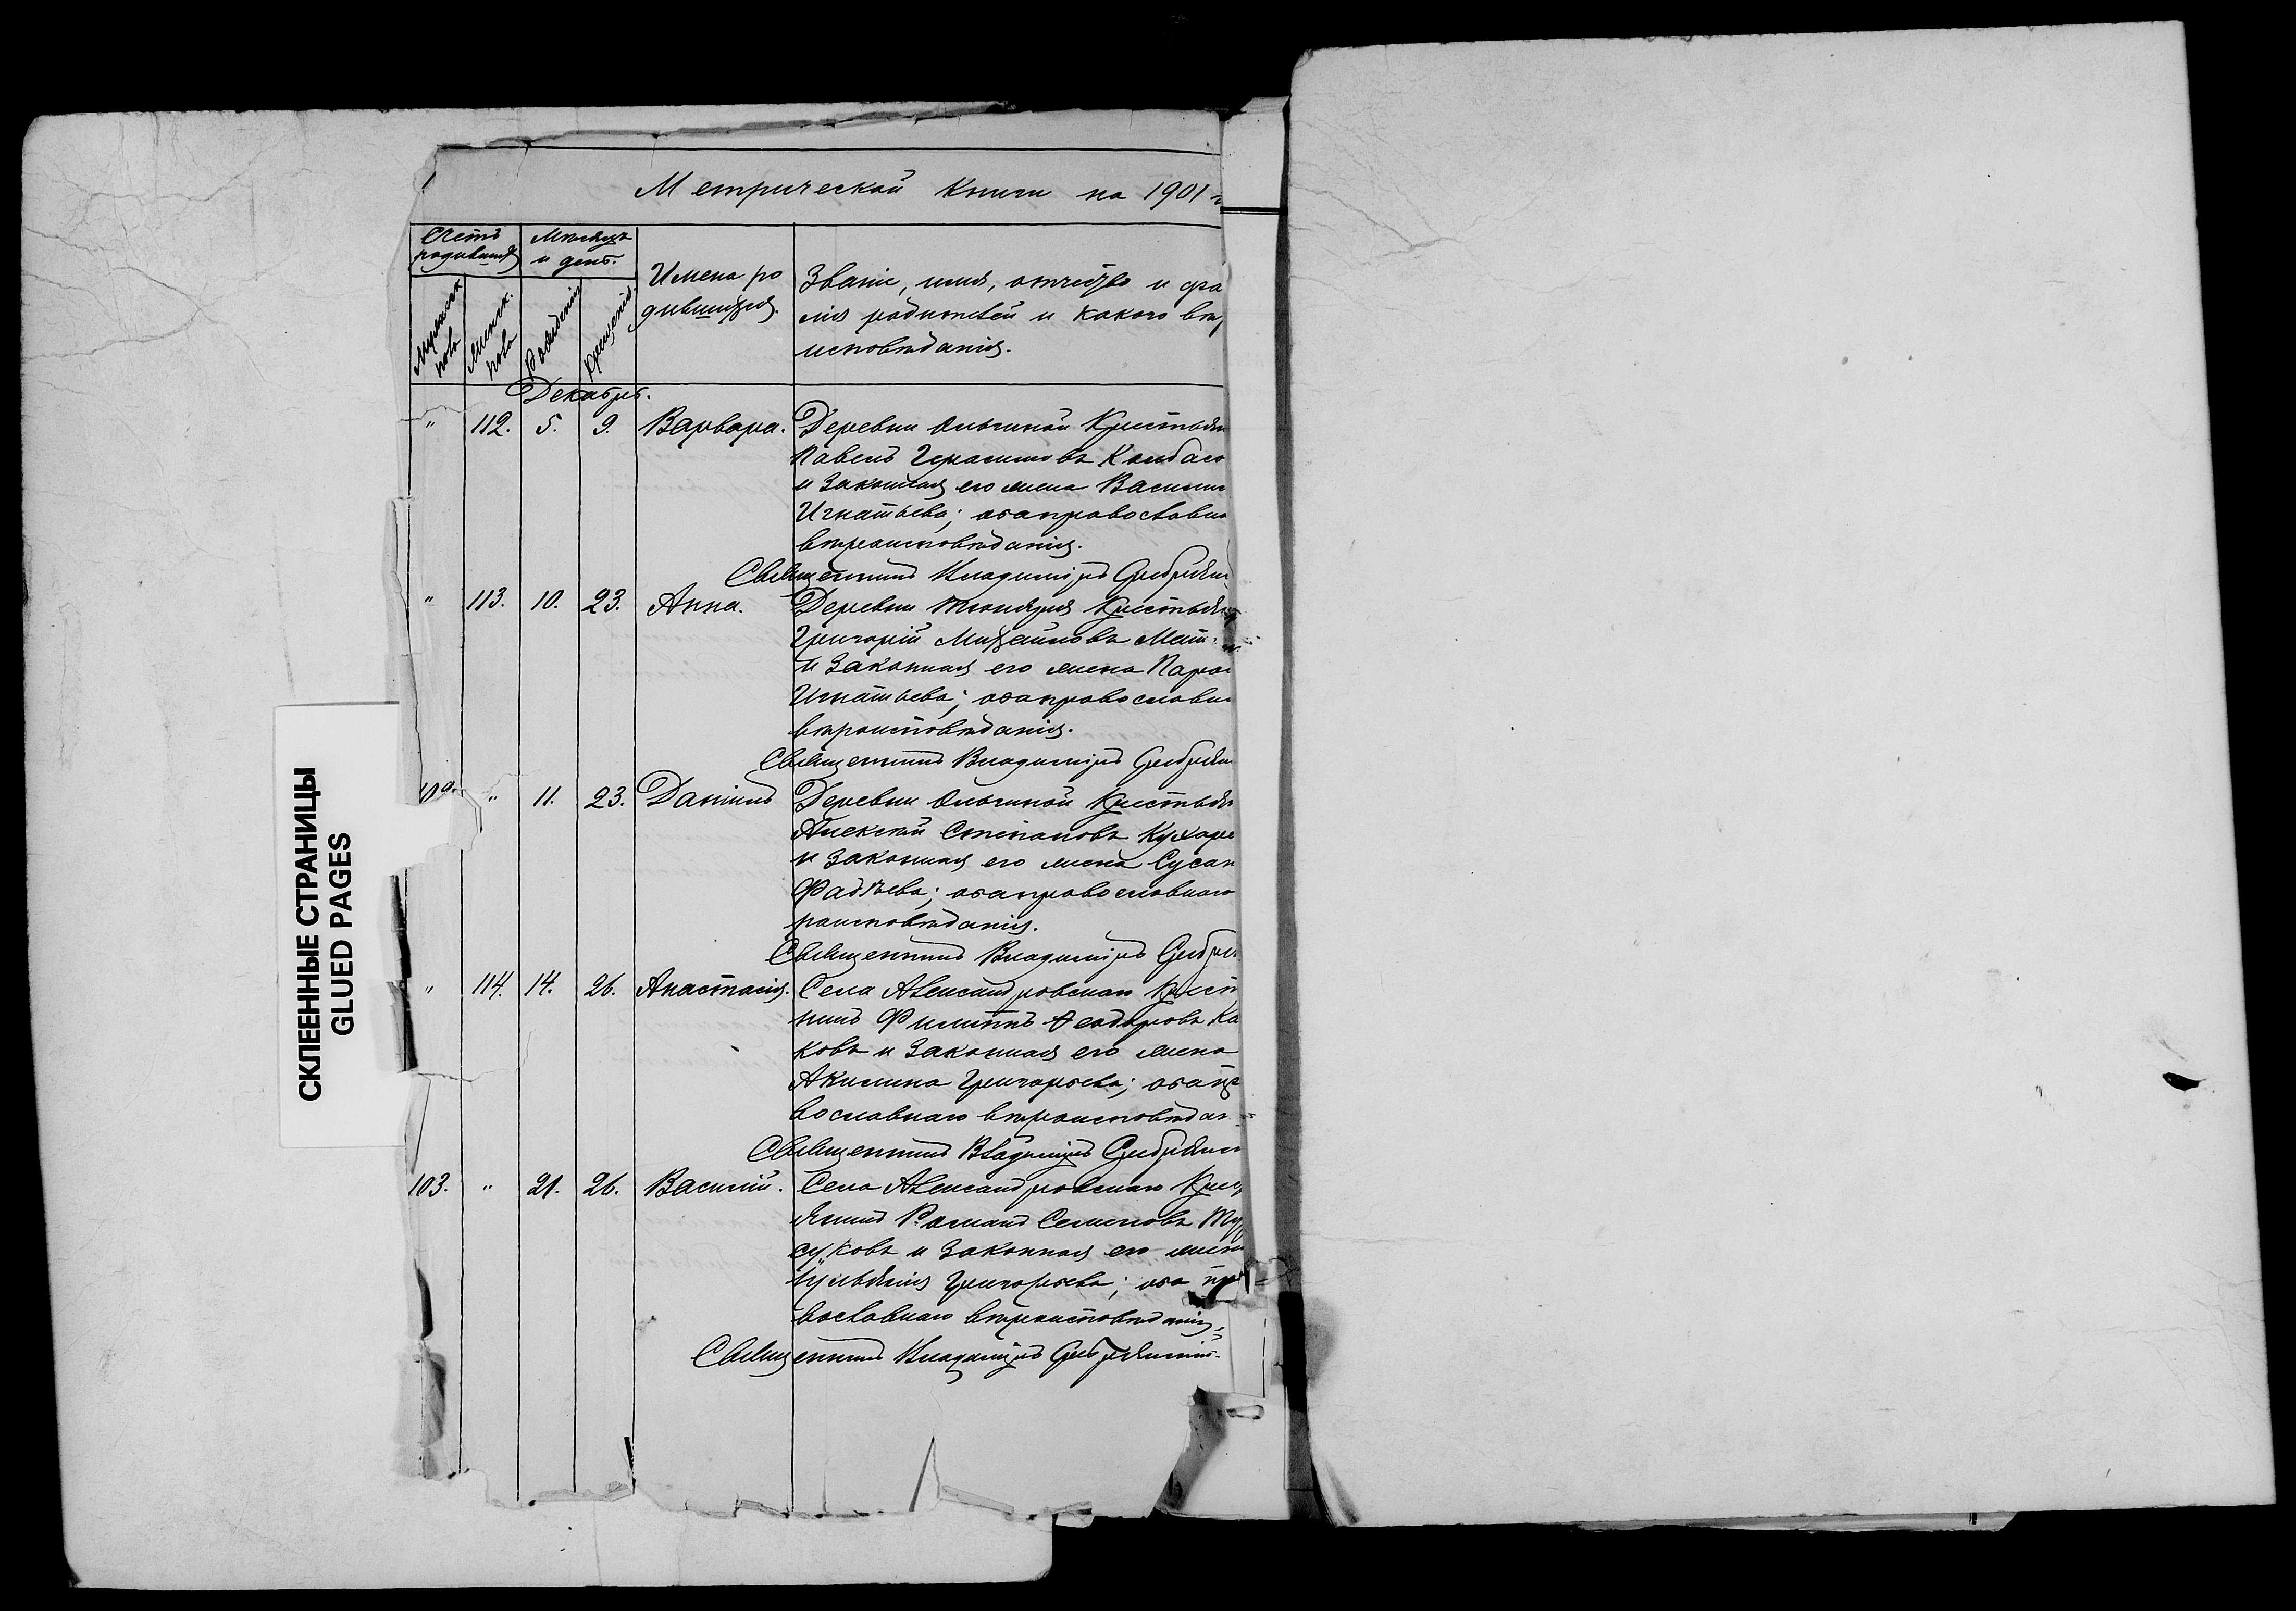 Метрической Книги на 1901 г
Счетъ родившихся
Мѣсяцъ и день.
Мужеск. пола
Женск. пола
Рожденія
Крещенія
Имена ро
дившихся.
Званіе, имя, отчество и фа
лія родителей и какого вѣр
исповѣданія.
Декабрь.
" 112. 5. 9. Варвара. Деревни Ольгиной Крестьян
Павелъ Герасимовъ Колбасо
и законная его жена Васили
Игнатьева; оба православна
вѣроисповѣданія.
Священникъ Владиміръ
" 113. 10. 23. Анна. Деревни Крестьян
Григорій Михайловъ Мат
и законная его жена Парас
Игнатьева; оба православн
вѣроисповѣданія.
Священникъ Владиміръ
" 11. 23. Даніилъ Деревни Ольгиной Крестьян
Алексѣй Степановъ Кухаре
и законная его жена Сусан
Фадѣева; оба православнаго
роисповѣданія.
Священникъ Владиміръ
" 114. 14. 26. Анастасія. Села Александровскаго Крест
нинъ Филиппъ Ѳеодоровъ Ка
ковъ и законная его жена
Акилина Григорьева; оба пра
вославнаго вѣроисповѣдан
Священникъ Владиміръ
103. " 21. 26. Василій. Села Александровскаго Крес
янинъ Романъ Семеновъ
суковъ и законная его жен
Григорьева; оба пра
вославнаго вѣроисповѣданія
Священникъ Владиміръ
СКЛЕЕННЫЕ СТРАНИЦЫ
GLUED PAGES